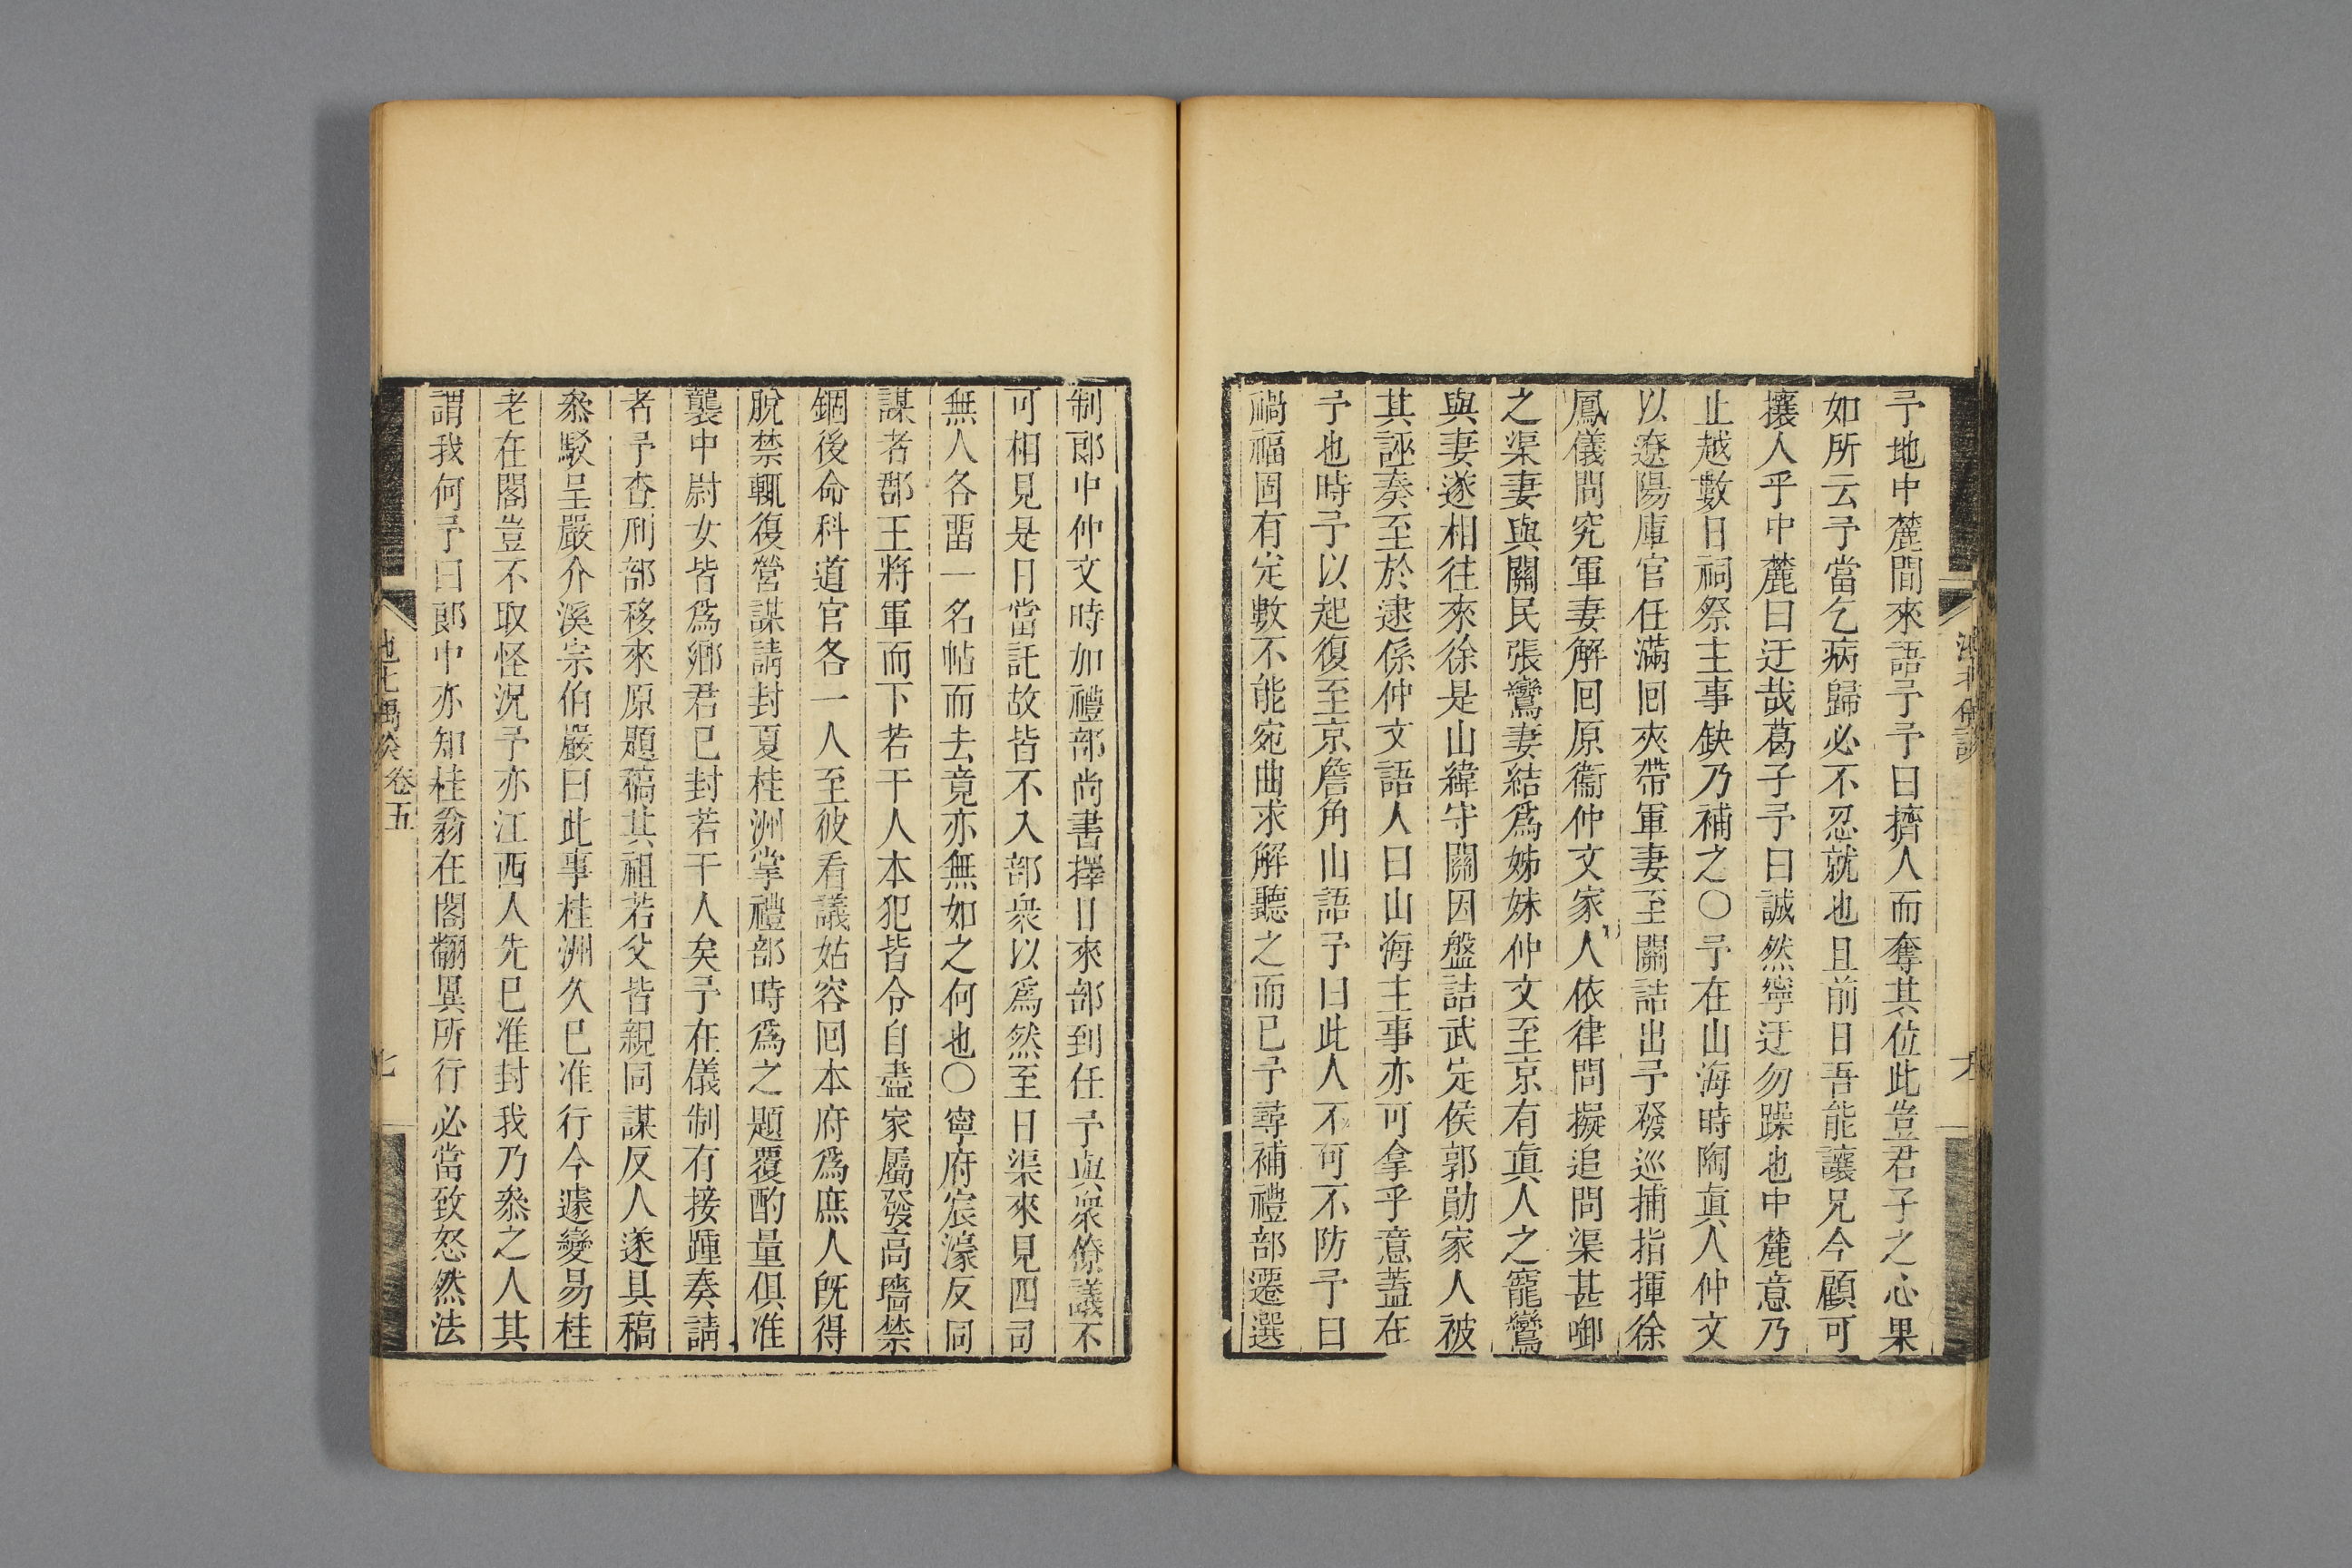 予地中麓間來語予予曰擠人而奪其位此豈君子之心果
如所云予當乞病歸必不忍就也且前日吾能讓兄今顧可
攘人乎中麓曰迂哉葛子予曰誠然寧迂勿躁也中麓意乃
止越數日祠祭主事缺乃補之○予在山海時陶真人仲文
以遼陽庫官任滿回夾帶軍妻至關詰出予發巡捕指揮徐
鳳儀問究軍妻解回原衞仲文家人依律問擬追問渠甚啣
之渠妻與關民張鸞妻結爲姊妹仲文至京有真人之寵鸞
與妻遂相往來徐是山緯守關因盤詰武定侯郭勛家人被
其誣奏至於逮係仲文語人曰山海主事亦可拿乎意蓋在
予也時予以起復至京詹角山語予曰此人不可不防予曰
禍福固有定數不能宛曲求解聽之而已予尋補禮部遷選
制郎中仲文時加禮部尚書擇日來部到任予與衆僚議不
可相見是日當託故皆不入部衆以爲然至日渠來見四司
無人各畱一名帖而去竟亦無如之何也○寧府宸濠反同
謀者郡王將軍而下若干人本犯皆令自盡家屬發高墻禁
錮後命科道官各一人至彼看議姑容回本府爲庶人旣得
脫禁輒復營謀請封夏桂洲掌禮部時爲之題覆酌量俱准
襲中尉女皆爲鄉君已封若干人矣予在儀制有接踵奏請
者予查刑部移來原題稿其祖若父皆親同謀反人遂具稿
叅駁呈嚴介溪宗伯嚴曰此事桂洲久已准行今遽變易桂
老在閣豈不取怪況予亦江西人先已准封我乃叅之人其
謂我何予曰郎中亦知桂翁在閣翻異所行必當致怒然法
卷五